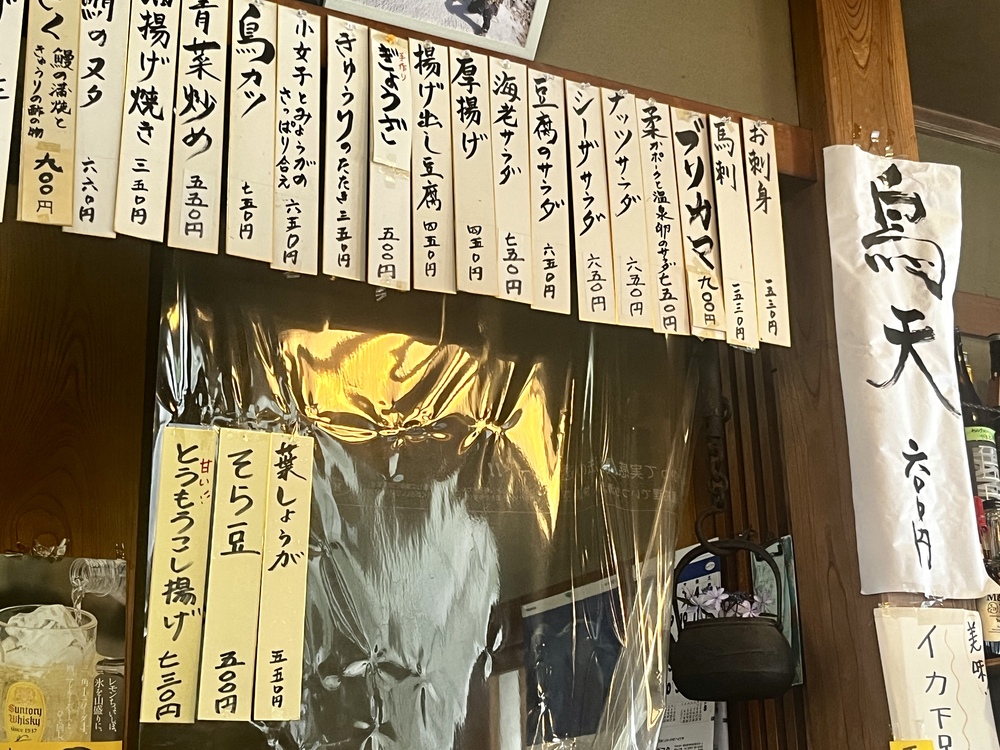 お刺身 一五三〇円
馬刺 一五三〇円
ブリカマ 九〇〇円
柔かポークと温泉卵のサラダ 七五〇円
ナッツサラダ 六五〇円
シーザサラダ 六五〇円
豆腐のサラダ 六五〇円
海老サラダ 七五〇円
厚揚げ 四五〇円
揚げ出し豆腐 四五〇円
手作り
ぎょうざ 五〇〇円
きゅうりのたたき 三五〇円
小女子とみょうがの
さっぱり合え 六五〇円
鳥カツ 七五〇円
青菜炒め 五五〇円
揚げ焼き 三五〇円
のヌタ 六六〇円
鰻の蒲焼と
きゅうりの酢の物 九〇〇円
鳥天 六〇〇円
葉しょうが 五五〇円
そら豆 五〇〇円
甘い!!
とうもろこし揚げ 七三〇円
美味
イカ下足
Suntory
Whisky
SINCE 1937